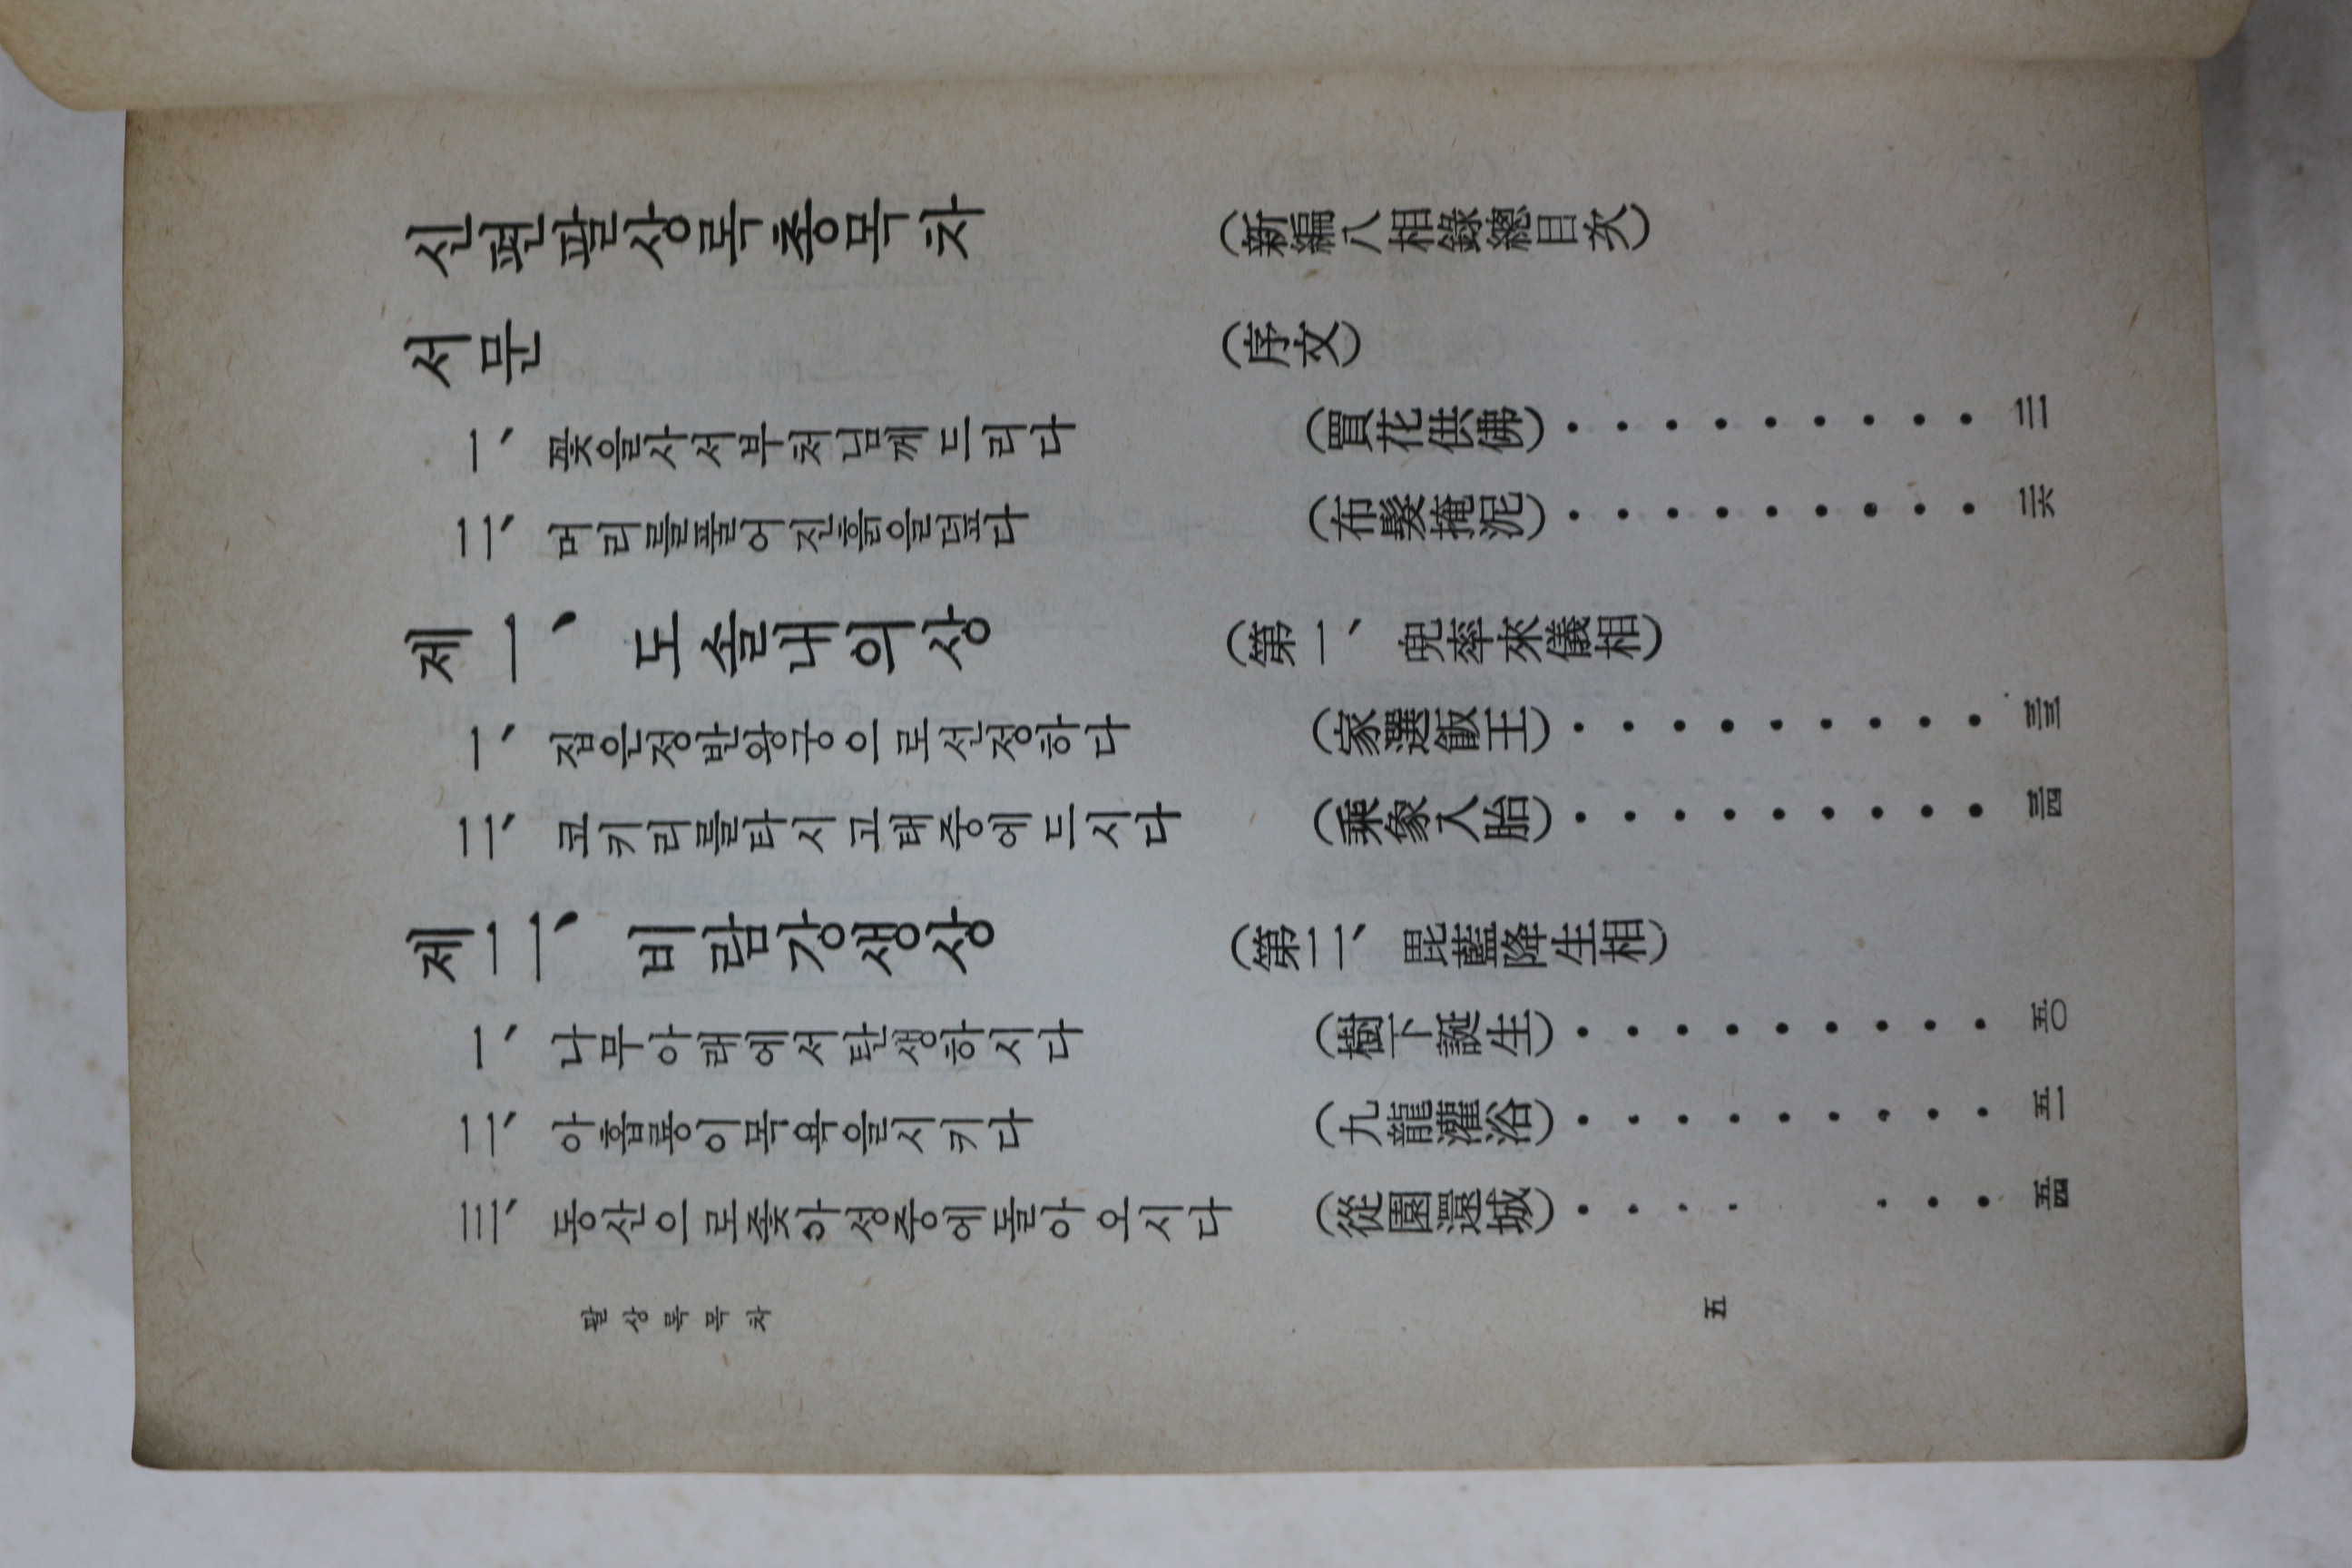 신편팔상록총목차 (新編八相錄總目次)
서문 (序文)
一、꽃을사서부처님께드리다 (買花供佛)・・・・・・・・・二一
二、머리를풀어진흙을덮다 (布髮掩泥)・・・・・・・・・二六
제一、도솔내의상 (第一、兜率來儀相)
一、집은정반왕궁으로선정하다 (家選飯王)・・・・・・・・・三三
二、코키리를타시고태중에드시다 (乗象入胎)・・・・・・・・・三四
제二、비람강생상 (第二、毘藍降生相)
一、나무아래에서탄생하시다 (樹下誕生)・・・・・・・・・五〇
二、아홉룡이목욕을시키다 (九龍灌浴)・・・・・・・・・五一
三、동산으로좇아성중에돌아오시다 (從園還城)・・・・ ・・・五四
팔상록목차 五